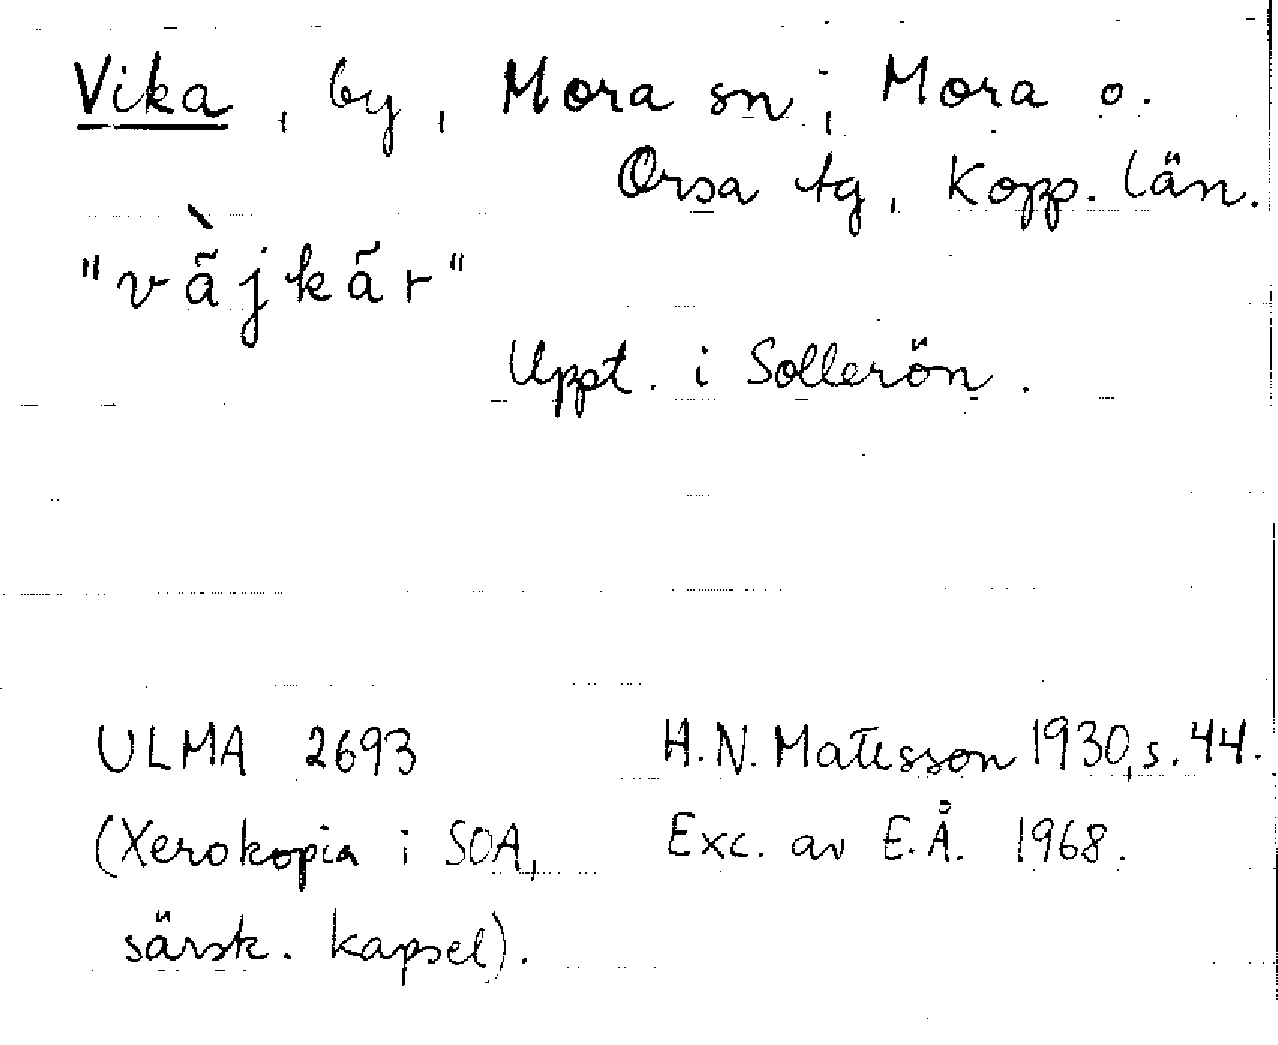 Vika, by, Mora sn; Mora o.
Orsa tg, Kopp. län.
"vã̀jkãr"
Uppt. i Sollerön.
ULMA 2693 H.N. Matsson 1930, s. 44.
(Xerokopia i SOA, Exc. av E.Å. 1968.
särsk. kapsel).